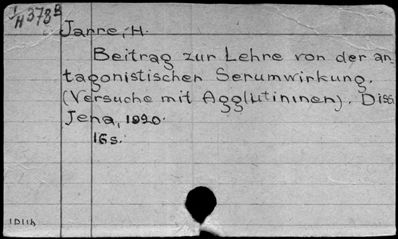 J/H 378B
Janre, H.
Beitrag zur Lehre von der an-
tagonistischen Serumwirkung.
(Versuche mit Agglutininen). Diss.
Jena, 1920.
16s.